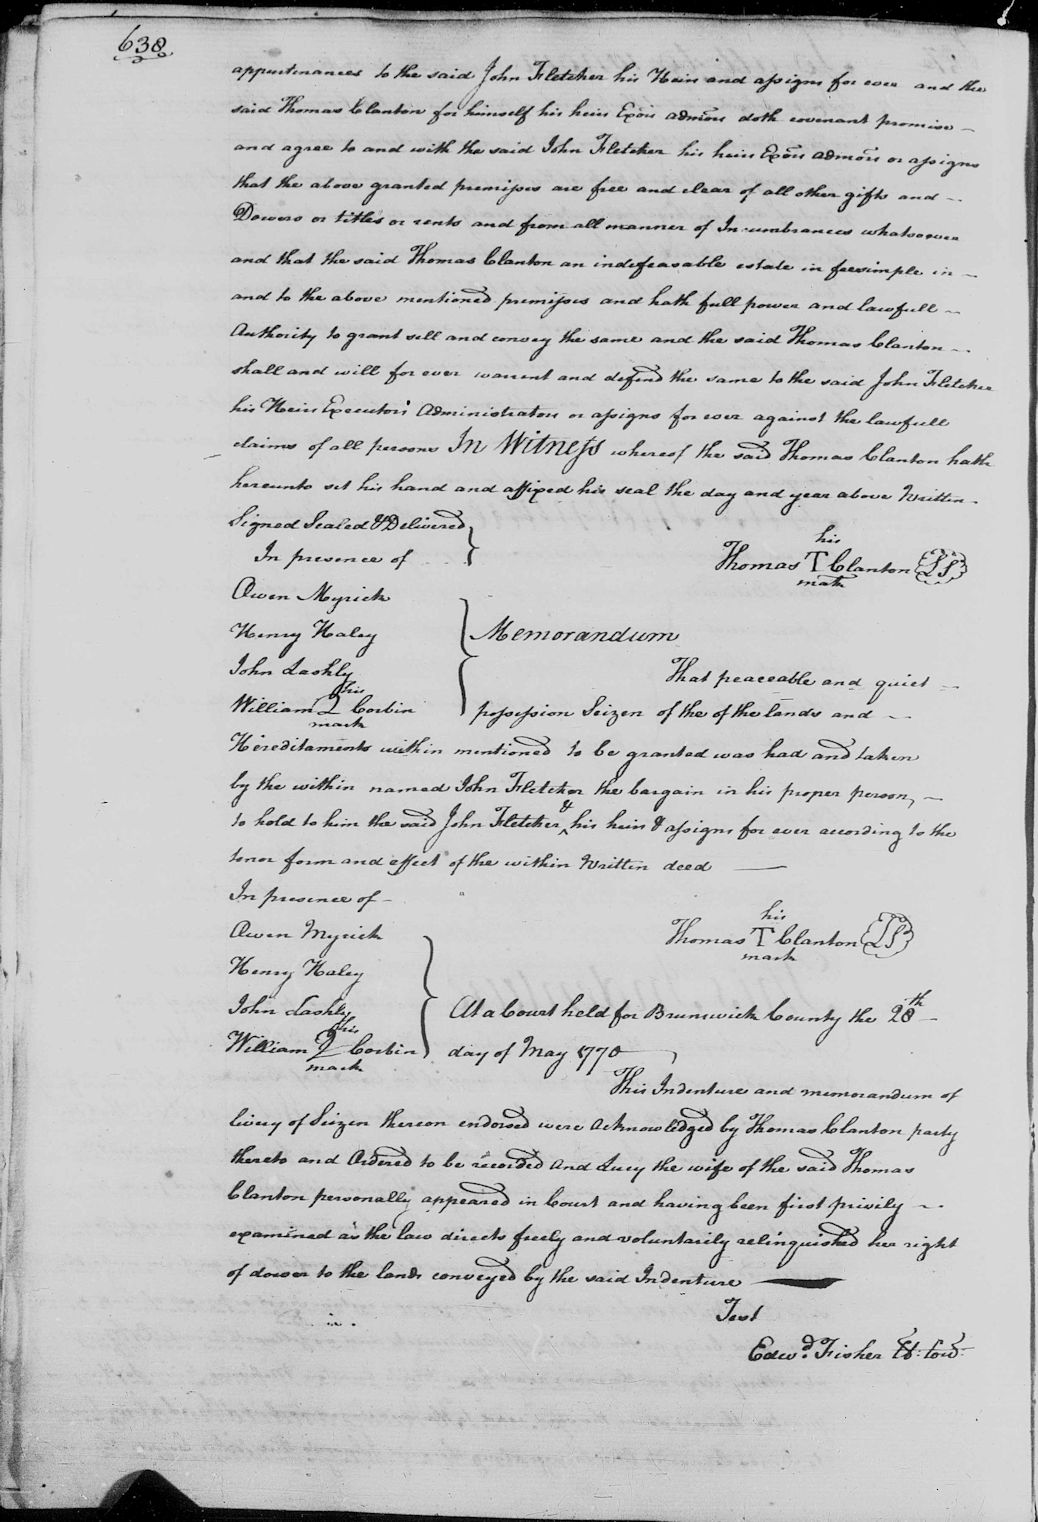 638
appurtenances to the said John Fletcher his Heirs and assigns for ever and the
said Thomas Clanton for himself his heirs Exōrs admōrs doth covenant promise –
and agree to and with the said John Fletcher his heirs Exōrs admōrs or assigns
that the above granted premisses are free and clear of all other gifts and –
Dowers or titles or rents and from all manner of Incumbrances whatsoever
and that the said Thomas Clanton an indefeasable estate in feesimple in –
and to the above mentioned premisses and hath full power and lawfull –
Authority to grant sell and convey the same and the said Thomas Clanton –
shall and will for ever warrent and defend the same to the said John Fletcher
his Heirs Executors Administrators or assigns for ever against the lawfull
claims of all persons In Witness whereof the said Thomas Clanton hath
hereunto set his hand and affixed his seal the day and year above Written –
Signed Sealed & Delivered
In presence of
his
Thomas T Clanton LS
mark
Owen Myrick
Henry Haley
John Lashly
his
William Q Corbin
mark
Memorandum
That peaceable and quiet –
possession Seizen of the of the lands and –
Hereditaments within mentioned to be granted was had and taken
by the within named John Fletcher the bargain in his proper person, –
to hold to him the said John Fletcher & his heirs & assigns for ever according to the
tenor form and effect of the within Written deed —
In presence of –
Owen Myrick
Henry Haley
John Lashly
his
William Q Corbin
mark
his
Thomas T Clanton LS
mark
At a Court held for Brunswick County the 28th –
day of May 1770
This Indenture and memorandum of
livery of Seizen thereon endorsed were acknowledged by Thomas Clanton party
thereto and Ordered to be recorded and Lucy the wife of the said Thomas
Clanton personally appeared in Court and having been first privily –
examined as the law directs freely and voluntarily relinquished her right
of dower to the lands conveyed by the said Indenture —
Test
Edwd. Fisher